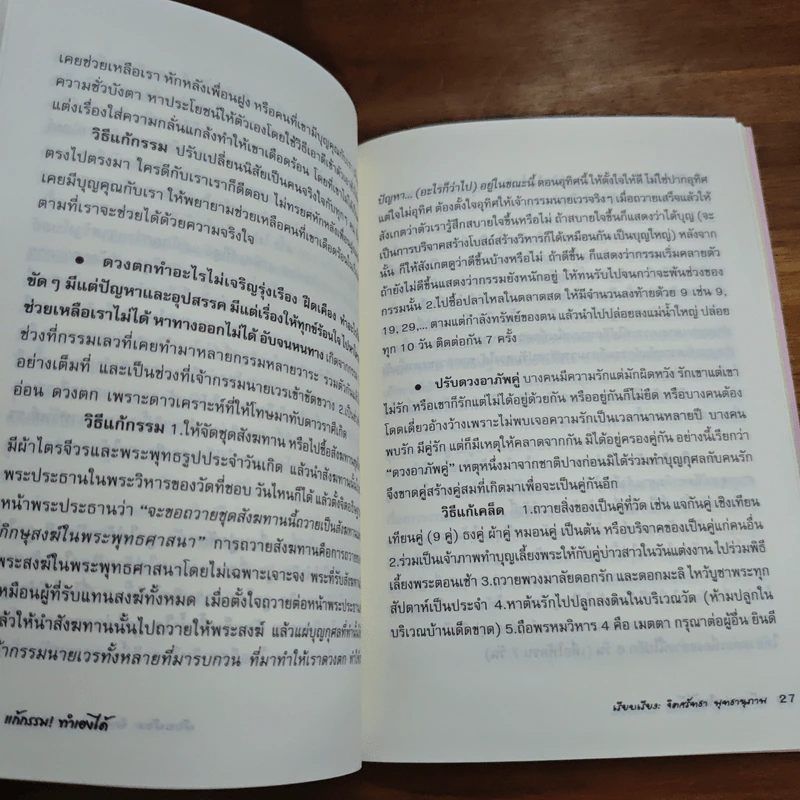 เคยช่วยเหลือเรา หักหลังเพื่อนฝูง หรือคนที่เขามีบุญคุณกับเรา
ความชั่วบังตา หาประโยชน์ให้ตัวเองโดยใช้วิธีเอาดีเข้าตัว
แต่งเรื่องใส่ความกลั่นแกล้งทำให้เขาเดือดร้อน โดยที่เขาไม่ได้
วิธีแก้กรรม ปรับเปลี่ยนนิสัยเป็นคนจริงใจกับทุกๆ คน
ตรงไปตรงมา ใครดีกับเราเราก็ดีตอบ ไม่ทรยศหักหลังเพื่อนฝูง
เคยมีบุญคุณกับเรา ให้พยายามช่วยเหลือคนที่เขาเดือดร้อน
ตามที่เราจะช่วยได้ด้วยความจริงใจ
● ดวงตกทำอะไรไม่เจริญรุ่งเรือง ฝืดเคือง
ขัดๆ มีแต่ปัญหาและอุปสรรค มีแต่เรื่องให้ทุกข์ร้อนใจ
ช่วยเหลือเราไม่ได้ หาทางออกไม่ได้ อับจนหนทาง เกิดจาก
ช่วงที่กรรมเลวที่เคยทำมาหลายกรรมหลายวาระ รวมตัวกัน
อย่างเต็มที่ และเป็นช่วงที่เจ้ากรรมนายเวรเข้าขัดขวาง
อ่อน ดวงตก เพราะดาวเคราะห์ที่ให้โทษมาทับดาวราศีเกิด
วิธีแก้กรรม 1.ให้จัดชุดสังฆทาน หรือไปซื้อสังฆทาน
มีผ้าไตรจีวรและพระพุทธรูปประจำวันเกิด แล้วนำสังฆทาน
พระประธานในพระวิหารของวัดที่ชอบ วันไหนก็ได้ แล้วตั้งจิต
หน้าพระประธานว่า “จะขอถวายชุดสังฆทานนี้ถวายเป็นสังฆทาน
ภิกษุสงฆ์ในพระพุทธศาสนา” การถวายสังฆทานคือการถวาย
พระสงฆ์ในพระพุทธศาสนาโดยไม่เฉพาะเจาะจง พระที่รับสังฆทาน
หมือนผู้ที่รับแทนสงฆ์ทั้งหมด เมื่อตั้งใจถวายต่อหน้าพระประธาน
ล้วให้นำสังฆทานนั้นไปถวายให้พระสงฆ์ แล้วแผ่บุญกุศล
จ้ากรรมนายเวรทั้งหลายที่มารบกวน ที่มาทำให้เราดวงตก
แก้กรรม! ทำเองได้
ปัญหา... (อะไรก็ว่าไป) อยู่ในขณะนี้ ตอนอุทิศนี้ ให้ตั้งใจให้ดี ไม่ใช่ปากอุทิศ
แต่ใจไม่อุทิศ ต้องตั้งใจอุทิศให้เจ้ากรรมนายเวรจริงๆ เมื่อถวายเสร็จแล้วให้
สังเกตว่าตัวเรารู้สึกสบายใจขึ้นหรือไม่ ถ้าสบายใจขึ้นก็แสดงว่าได้บุญ (จะ
เป็นการบริจาคสร้างโบสถ์สร้างวิหารก็ได้เหมือนกัน เป็นบุญใหญ่) หลังจาก
นั้น ก็ให้สังเกตดูว่าดีขึ้นบ้างหรือไม่ ถ้าดีขึ้น ก็แสดงว่ากรรมเริ่มคลายตัว
ถ้ายังไม่ดีขึ้นแสดงว่ากรรมยังหนักอยู่ ให้ทนรับไปจนกว่าจะพ้นช่วงของ
กรรมนั้น 2.ไปซื้อปลาไหลในตลาดสด ให้มีจำนวนลงท้ายด้วย 9 เช่น 9,
19, 29,... ตามแต่กำลังทรัพย์ของตน แล้วนำไปปล่อยลงแม่น้ำใหญ่ ปล่อย
ทุก 10 วัน ติดต่อกัน 7 ครั้ง
● ปรับดวงอาภัพคู่ บางคนมีความรักแต่มักผิดหวัง รักเขาแต่เขา
ไม่รัก หรือเขาก็รักแต่ไม่ได้อยู่ด้วยกัน หรืออยู่กันก็ไม่ยืด หรือบางคนต้อง
โดดเดี่ยวอ้างว้างเพราะไม่พบเจอความรักเป็นเวลานานหลายปี บางคน
พบรัก มีคู่รัก แต่ก็มีเหตุให้คลาดจากกัน มิได้อยู่ครองคู่กัน อย่างนี้เรียกว่า
“ดวงอาภัพคู่” เหตุหนึ่งมาจากชาติปางก่อนมิได้ร่วมทำบุญกุศลกับคนรัก
จึงขาดคู่สร้างคู่สมที่เกิดมาเพื่อจะเป็นคู่กันอีก
วิธีแก้เคล็ด 1.ถวายสิ่งของเป็นคู่ที่วัด เช่น แจกันคู่ เชิงเทียน
เทียนคู่ (9 คู่) ธงคู่ ผ้าคู่ หมอนคู่ เป็นต้น หรือบริจาคของเป็นคู่แก่คนอื่น
2.ร่วมเป็นเจ้าภาพทำบุญเลี้ยงพระให้กับคู่บ่าวสาวในวันแต่งงาน ไปร่วมพิธี
เลี้ยงพระตอนเช้า 3.ถวายพวงมาลัยดอกรัก และดอกมะลิ ไหว้บูชาพระทุก
สัปดาห์เป็นประจำ 4.หาต้นรักไปปลูกลงดินในบริเวณวัด (ห้ามปลูกใน
บริเวณบ้านเด็ดขาด) 5.ถือพรหมวิหาร 4 คือ เมตตา กรุณาต่อผู้อื่น ยินดี
เรียบเรียง: จิตศรัทธา พุทธานุภาพ 27